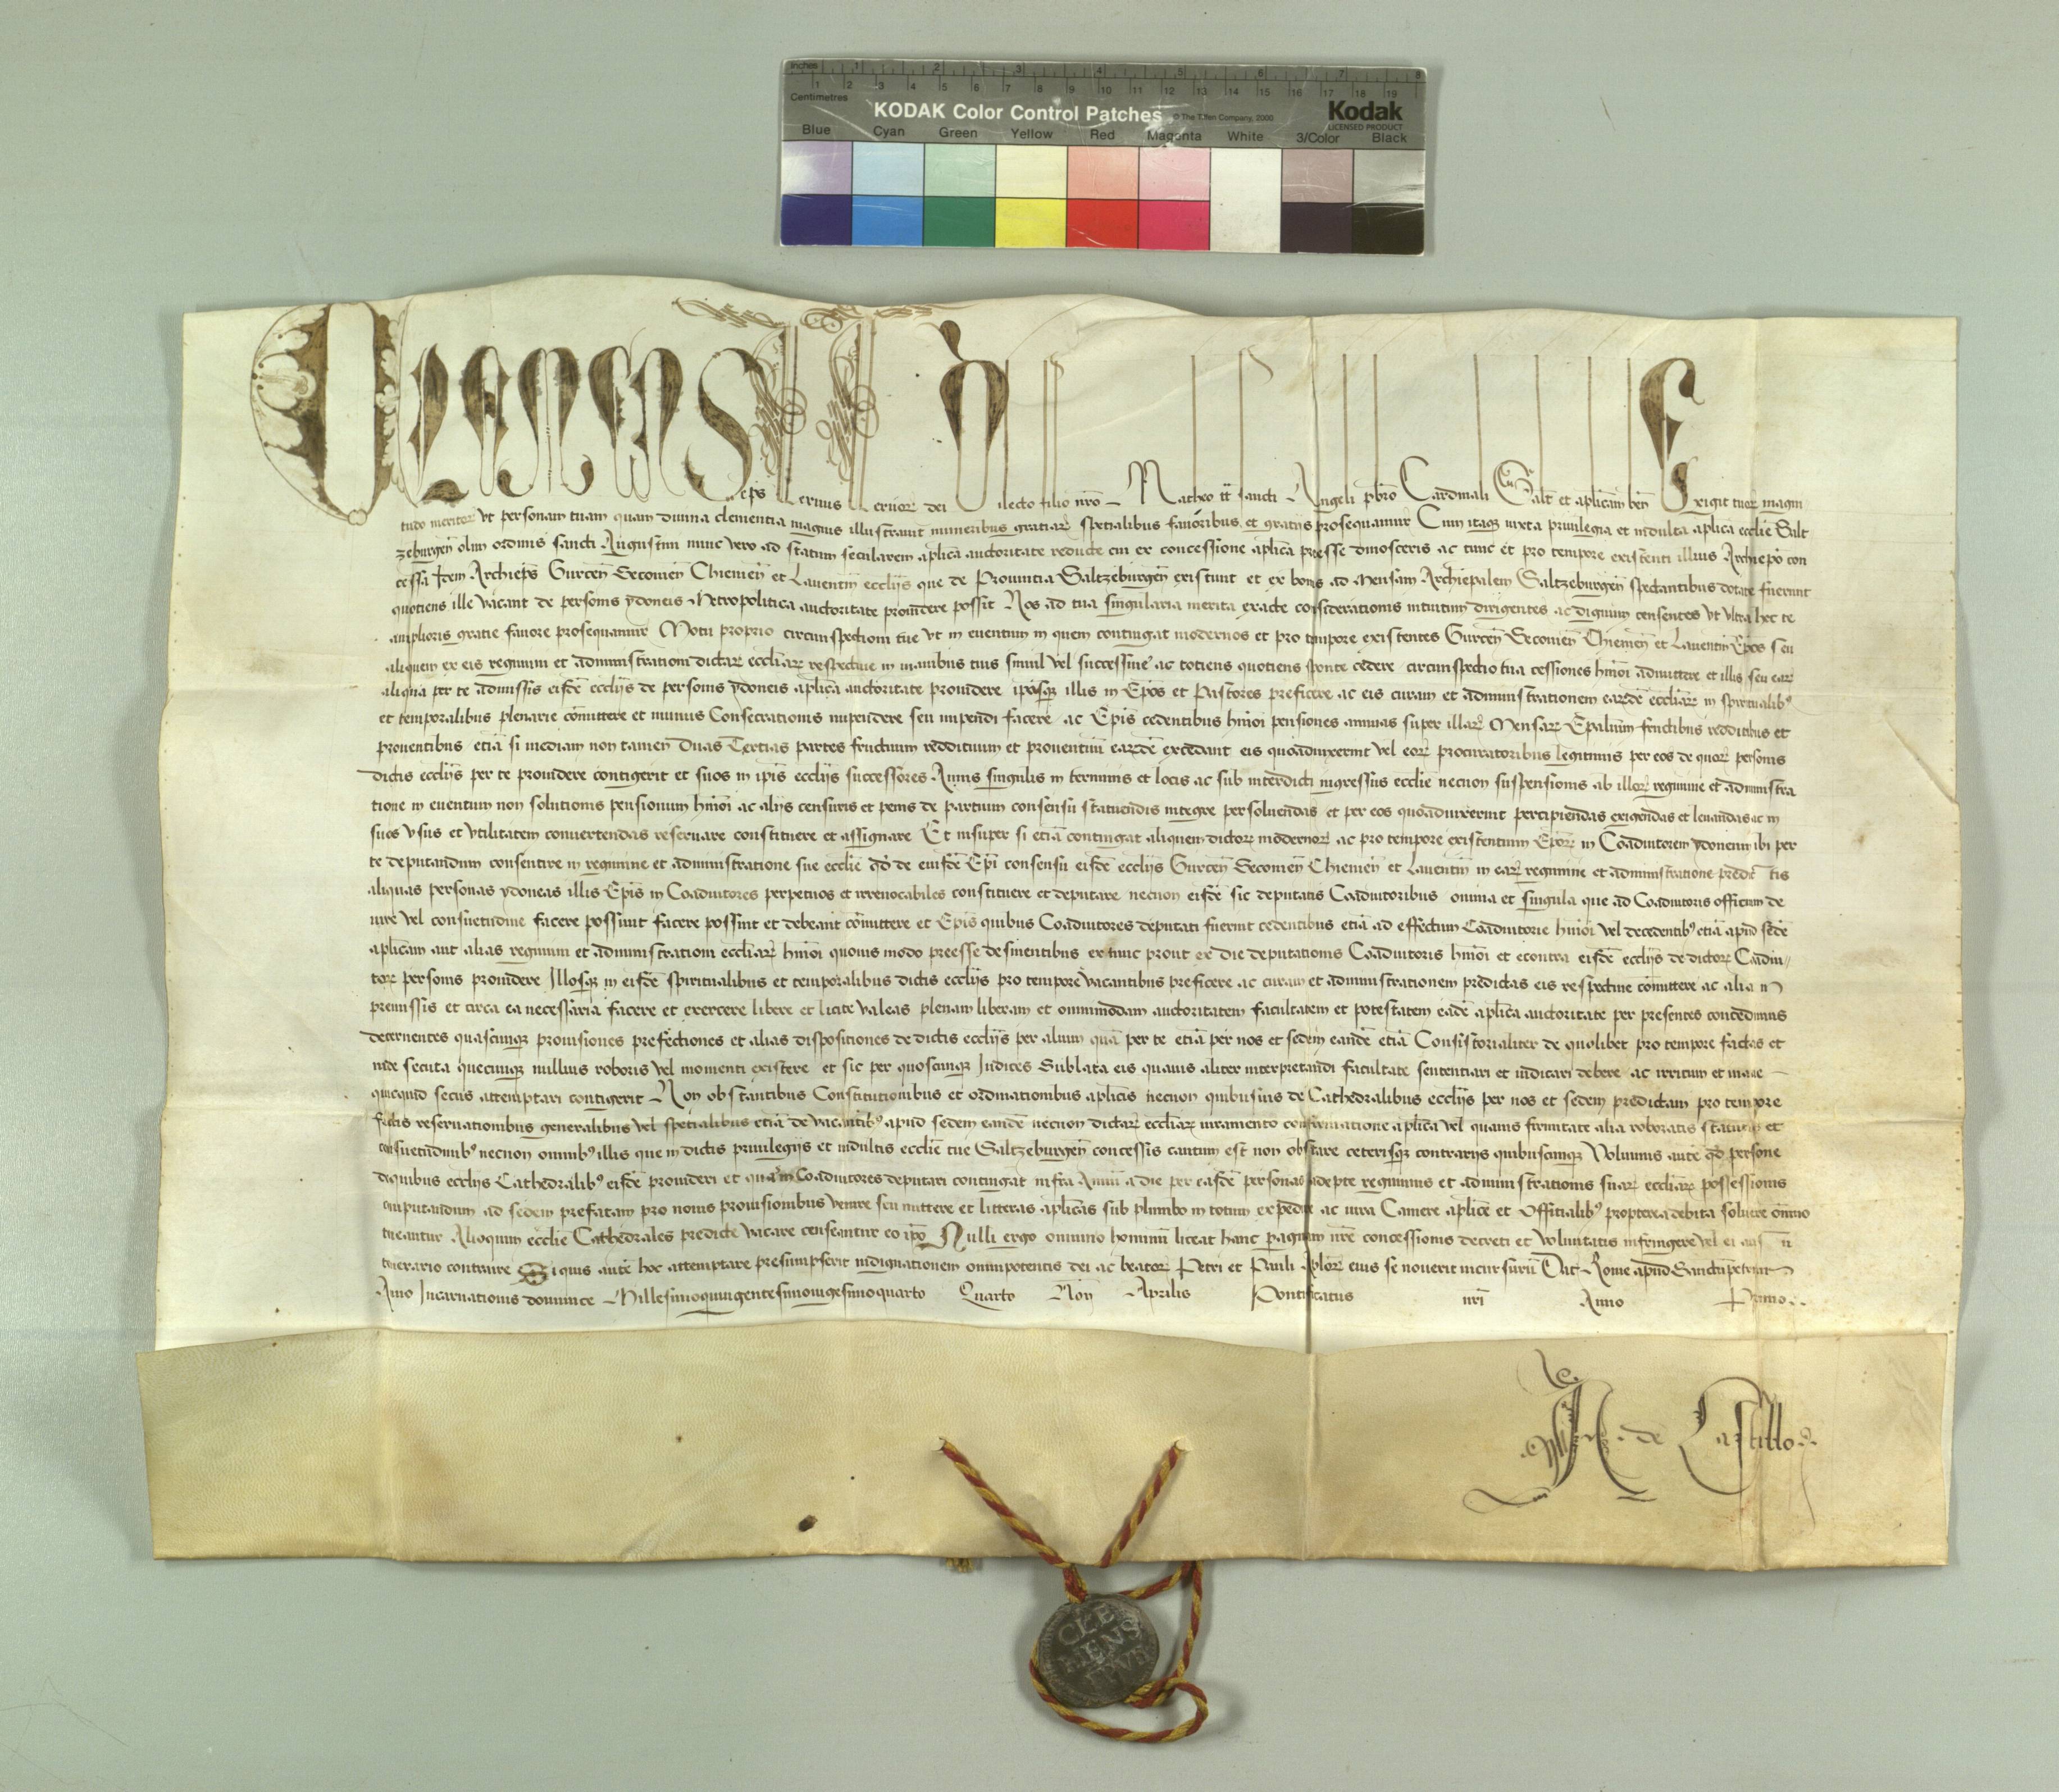 Inches 1 2 3 4 5 6 7 8
Centimetres 1 2 3 4 5 6 7 8 9 10 11 12 13 14 15 16 17 18 19
KODAK Color Control Patches © The Tiffen Company, 2000 Kodak
LICENSED PRODUCT
Blue Cyan Green Yellow Red Magenta White 3/Color Black
Clemens eps servus servor dei Dilecto filio nro Matheo tt sancti Angeli pbro Cardinali Salt et aplicam ben Exigit tuor magni
tudo meritor ut personam tuam quam divina clementia magnis illustravit muneribus gratiar spetialibus favoribus et gratiis prosequamur Cum itaq iuxta privilegia et indulta aplica ecclie Salt
zeburgen olim ordinis sancti Augustini nunc vero ad statum secularem aplica auctoritate reducte cui ex concessione aplica preesse dinosceris ac tunc et pro tempore existenti illius Archiepo con
cessa idem Archieps Gurcen Secovien Chiemen et Laventin ecclijs que de Provintia Saltzeburgen existunt et ex bonis ad Mensam Archiepalem Saltzeburgen spectantibus dotate fuerunt
quotiens ille vacant de personis ydoneis Metropolitica auctoritate providere possit Nos ad tua singularia merita exacte considerationis intuitum dirigentes ac dignum censentes ut ultra hec te
amplioris gratie favore prosequamur Motu proprio circunspectioni tue ut in eventum in quem contingat modernos et pro tempore existentes Gurcen Secovien Chiemen et Laventin Epos seu
aliquem ex eis regimini et administrationi dictar eccliar respective in manibus tuis simul vel successive ac totiens quotiens sponte cedere circunspectio tua cessiones hmoi admittere et illis seu ear
aliqua per te admissis eisde ecclijs de personis ydoneis aplica auctoritate providere ipsosq illis in Epos et Pastores preficere ac eis curam et administrationem earunde eccliar in spiritualib
et temporalibus plenarie comittere et munus Consecrationis impendere seu impendi facere ac Epis cedentibus hmoi pensiones annuas super illar Mensar Epalium fructibus redditibus et
proventibus etia si mediam non tamen Duas Tertias partes fructuum reddituum et proventuu earunde excedant eis quoadvixerint vel eor procuratoribus legitimis per eos de quor personis
dictis ecclijs per te providere contigerit et suos in ipis ecclijs successores Annis singulis in terminis et locis ac sub interdicti ingressus ecclie necnon suspensionis ab illor regimine et administra
tione in eventum non solutionis pensionum hmoi ac alijs censuris et penis de partium consensu statuendis integre persolvendas et per eos quoadvixerint percipiendas exigendas et levandas ac in
suos usus et utilitatem convertendas reservare constituere et assignare Et insuper si etia contingat aliquem dictor modernor ac pro tempore existentium Epor in Coadiutorem ydoneum ibi per
te deputandum consentire in regimine et administratione sue ecclie qd de eiusde Epi consensu eisde ecclijs Gurcen Secovien Chiemen et Laventin in ear regimine et administratione predic tis
aliquas personas ydoneas illis Epis in Coadiutores perpetuos et irrevocabiles constituere et deputare necnon eisde sic deputatis Coadiutoribus omnia et singula que ad Coadiutoris officium de
iure vel consuetudine facere possunt facere possint et debeant comittere et Epis quibus Coadiutores deputati fuerint cedentibus etia ad effectum Coadiutorie hmoi vel decedentib etia apud sede
aplicam aut alias regimini et administrationi eccliar hmoi quovis modo preesse desinentibus ex tunc prout ex die deputationis Coadiutoris hmoi et econtra eisde ecclijs de dictor Coadiu
tor personis providere Illosq in eisde spiritualibus et temporalibus dictis ecclijs pro tempore vacantibus preficere ac curam et administrationem predictas eis respective comittere ac alia in
premissis et circa ea necessaria facere et exercere libere et licite valeas plenam liberam et omnimodam auctoritatem facultatem et potestatem eade aplica auctoritate per presentes concedimus
decernentes quascunq provisiones prefectiones et alias dispositiones de dictis ecclijs per alium qua per te etia per nos et sedem eande etia Consistorialiter de quolibet pro tempore factas et
inde secuta quecunq nullius roboris vel momenti existere et sic per quoscunq Iudices Sublata eis quavis aliter interpretandi facultate sententiari et iudicari debere ac irritum et inane
quicquid secus attemptari contigerit Non obstantibus Constitutionibus et ordinationibus aplicis necnon quibusvis de Cathedralibus ecclijs per nos et sedem predictam pro tempore
factis reservationibus generalibus vel spetialibus etia de vacantib apud sedem eande necnon dictar eccliar iuramento confirmatione aplica vel quavis firmitate alia roboratis statutis et
consuetudinib necnon omnib illis que in dictis privilegijs et indultis ecclie tue Saltzeburgen concessis cautum est non obstare ceterisq contrarijs quibuscunq Volumus aute qd persone
de quibus ecclijs Cathedralib eisde provideri et quas in Coadiutores deputari contingat infra Annu a die per easde personas adepte regiminis et administrationis suar eccliar possessionis
computandum ad sedem prefatam pro novis provisionibus venire seu mittere et litteras aplicas sub plumbo in totum expedire ac iura Camere aplice et Offitialib propterea debita solvere omnino
teneantur Alioquin ecclie Cathedrales predicte vacare censeantur eo ipo Nulli ergo omnino hominu liceat hanc paginam nre concessionis decreti et voluntatis infringere vel ei ausu
temerario contraire Siquis aute hoc attemptare presumpserit indignationem omnipotentis dei ac beator Petri et Pauli Aplor eius se noverit incursurum Dat Rome apud Sanctupetrum
Anno Incarnationis dominice Millesimoquingentesimovigesimoquarto Quarto Non Aprilis Pontificatus nri Anno Primo
de Castillo
CLE
MENS